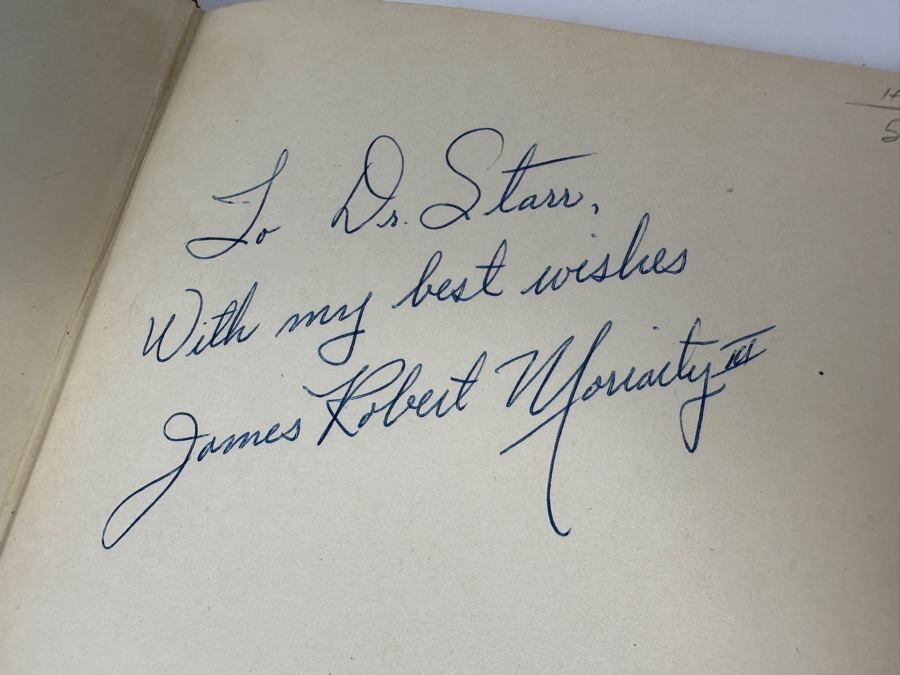 To Dr. Starr,
With my best wishes
James Robert Moriarty III